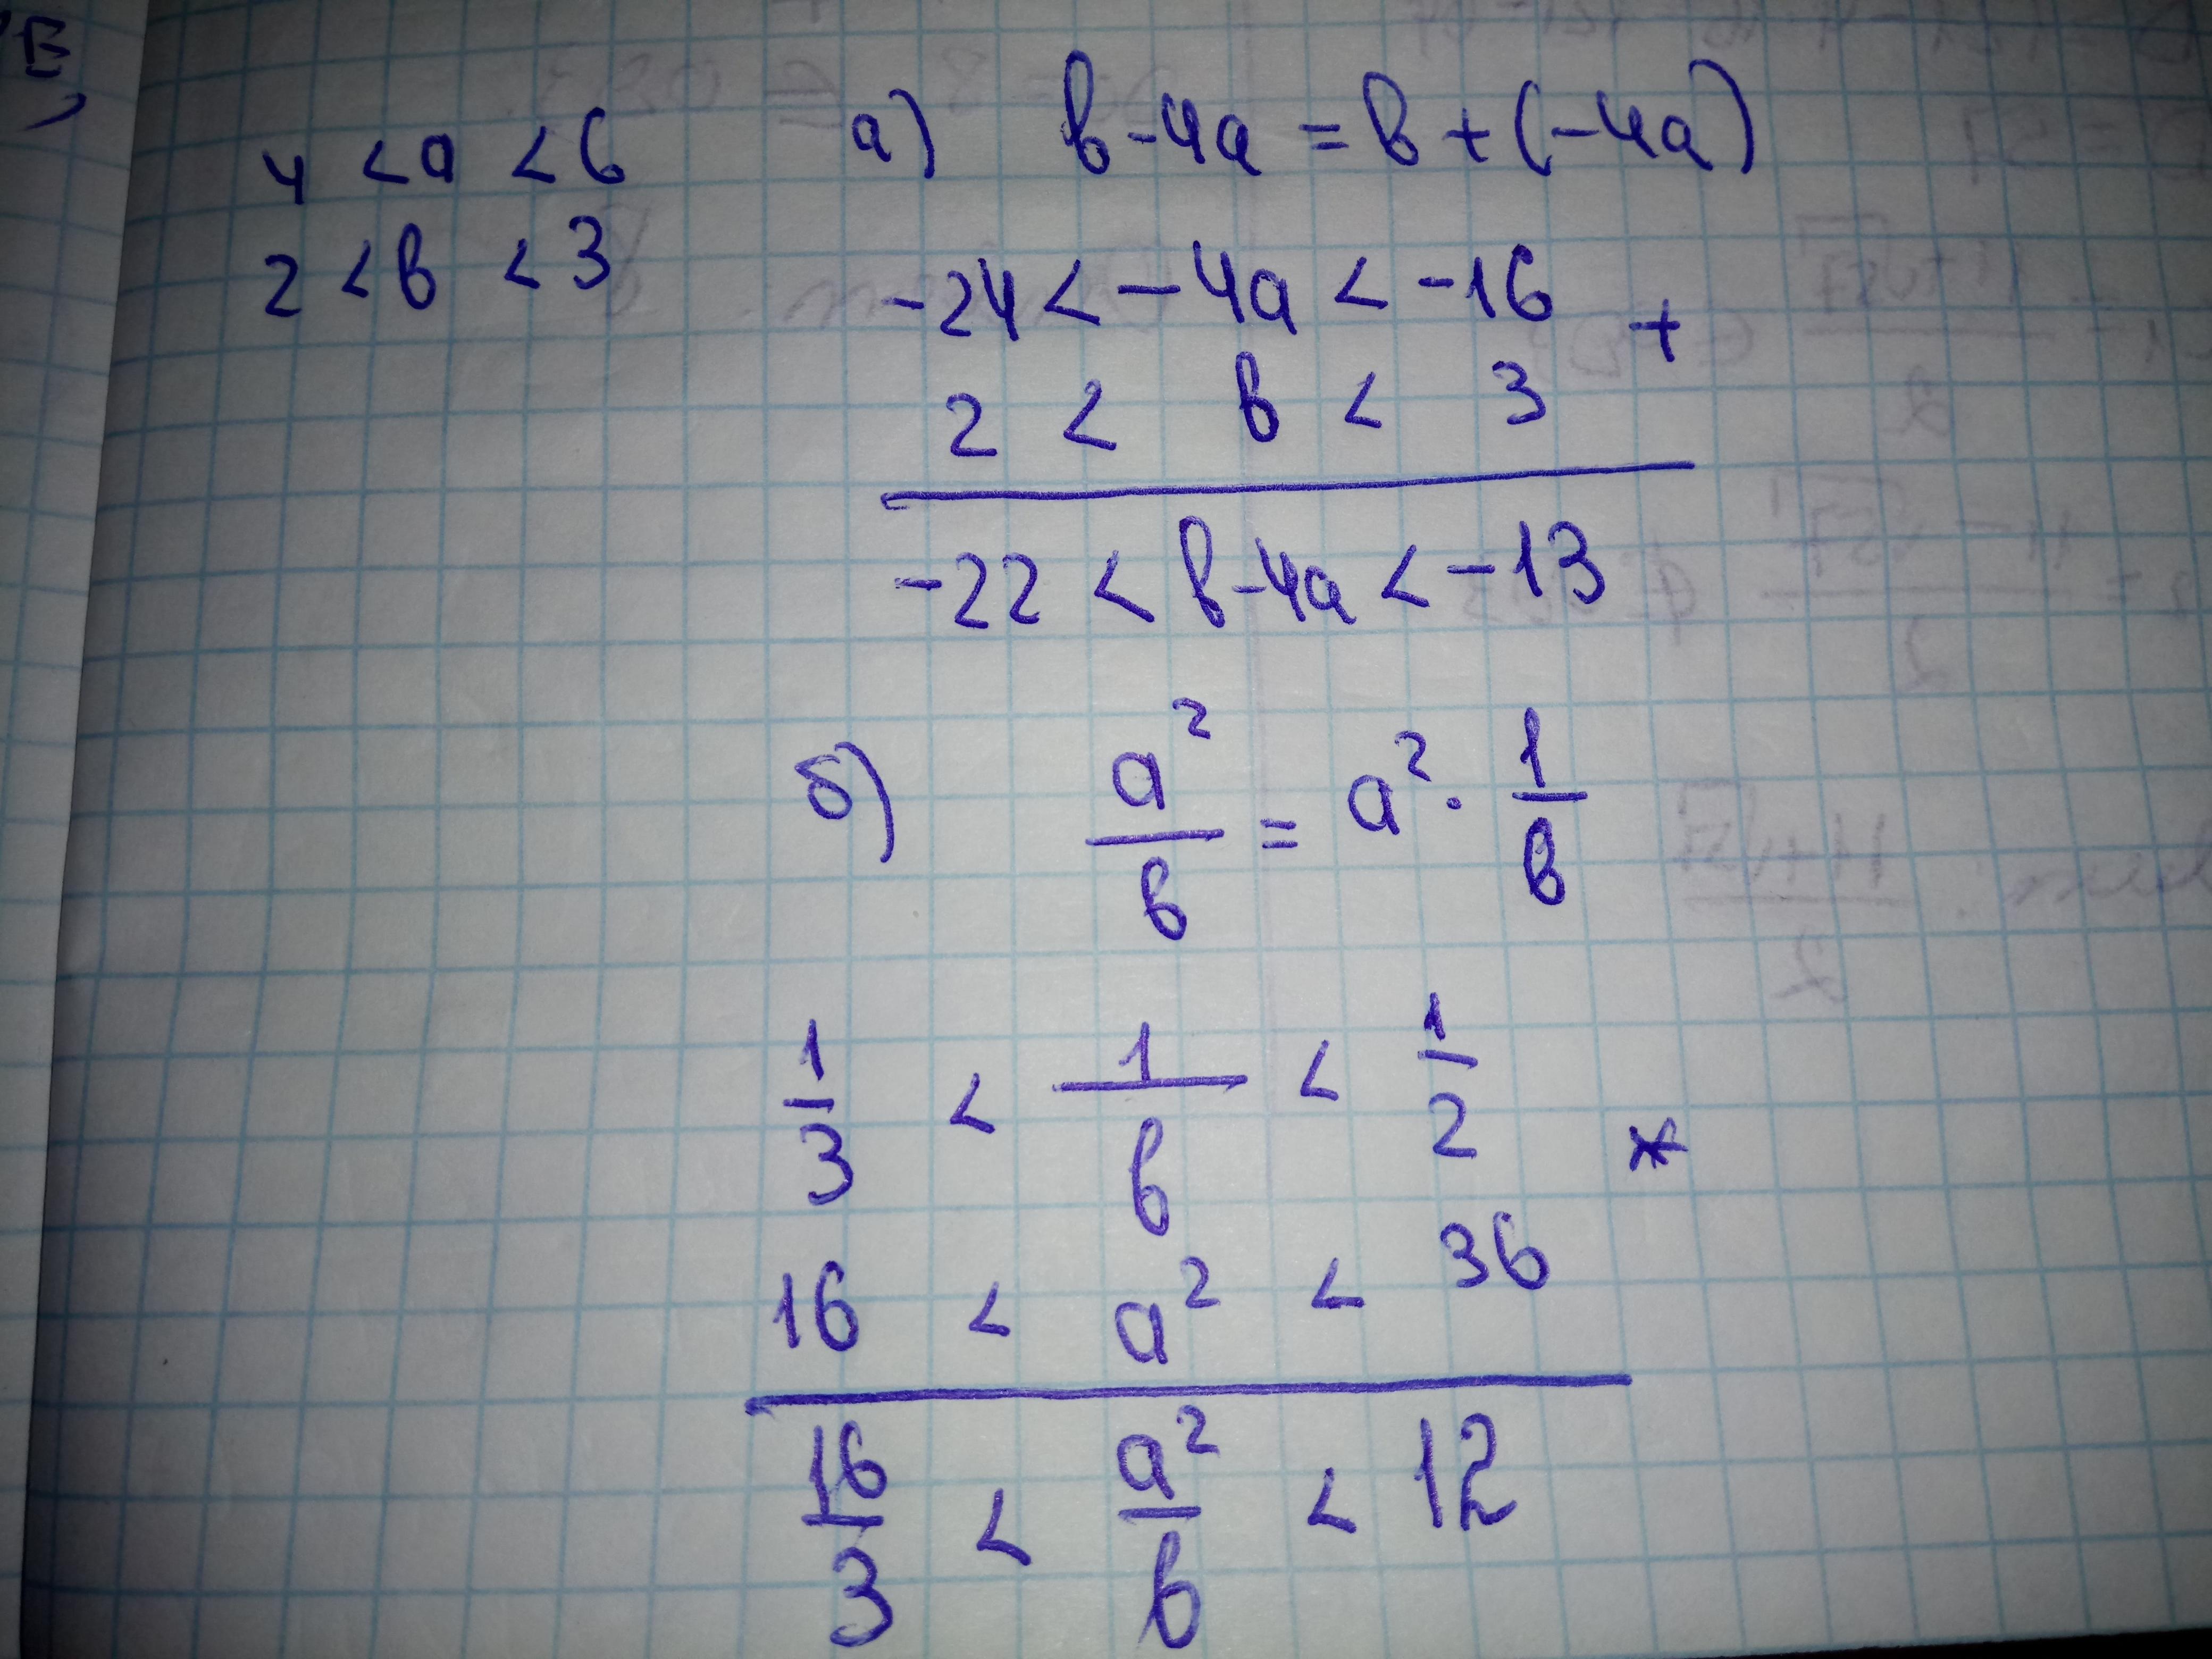 В,
4 < a < 6
2 < в < 3
а) в - 4a = в + (-4a)
-24 < -4a < -16
+
2 < в < 3
-22 < в - 4a < -13
б) a²/в = a² · 1/в
1/3 < 1/в < 1/2
*
16 < a² < 36
16/3 < a²/в < 12